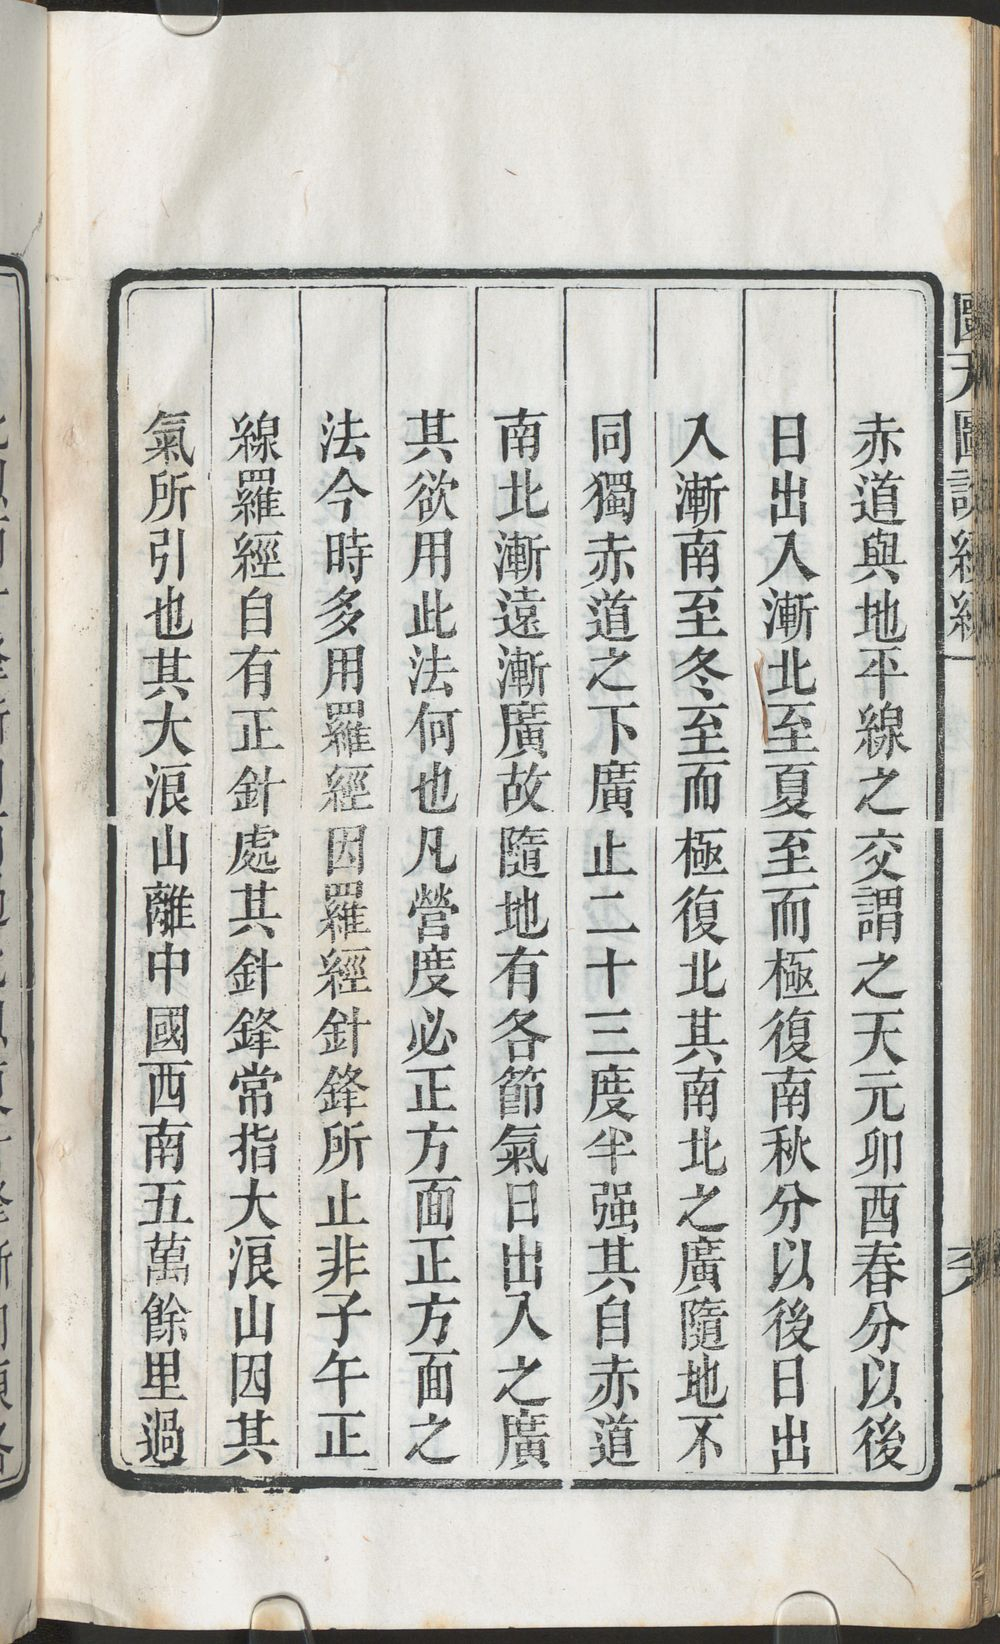 赤道與地平線之交謂之天元卯酉春分以後
日出入漸北至夏至而極復南秋分以後日出
入漸南至冬至而極復北其南北之廣隨地不
同獨赤道之下廣止二十三度半强其自赤道
南北漸遠漸廣故隨地有各節氣日出入之廣
其欲用此法何也凡營度必正方面正方面之
法今時多用羅經因羅經針鋒所止非子午正
線羅經自有正針處其針鋒常指大浪山因其
氣所引也其大浪山離中國西南五萬餘里過